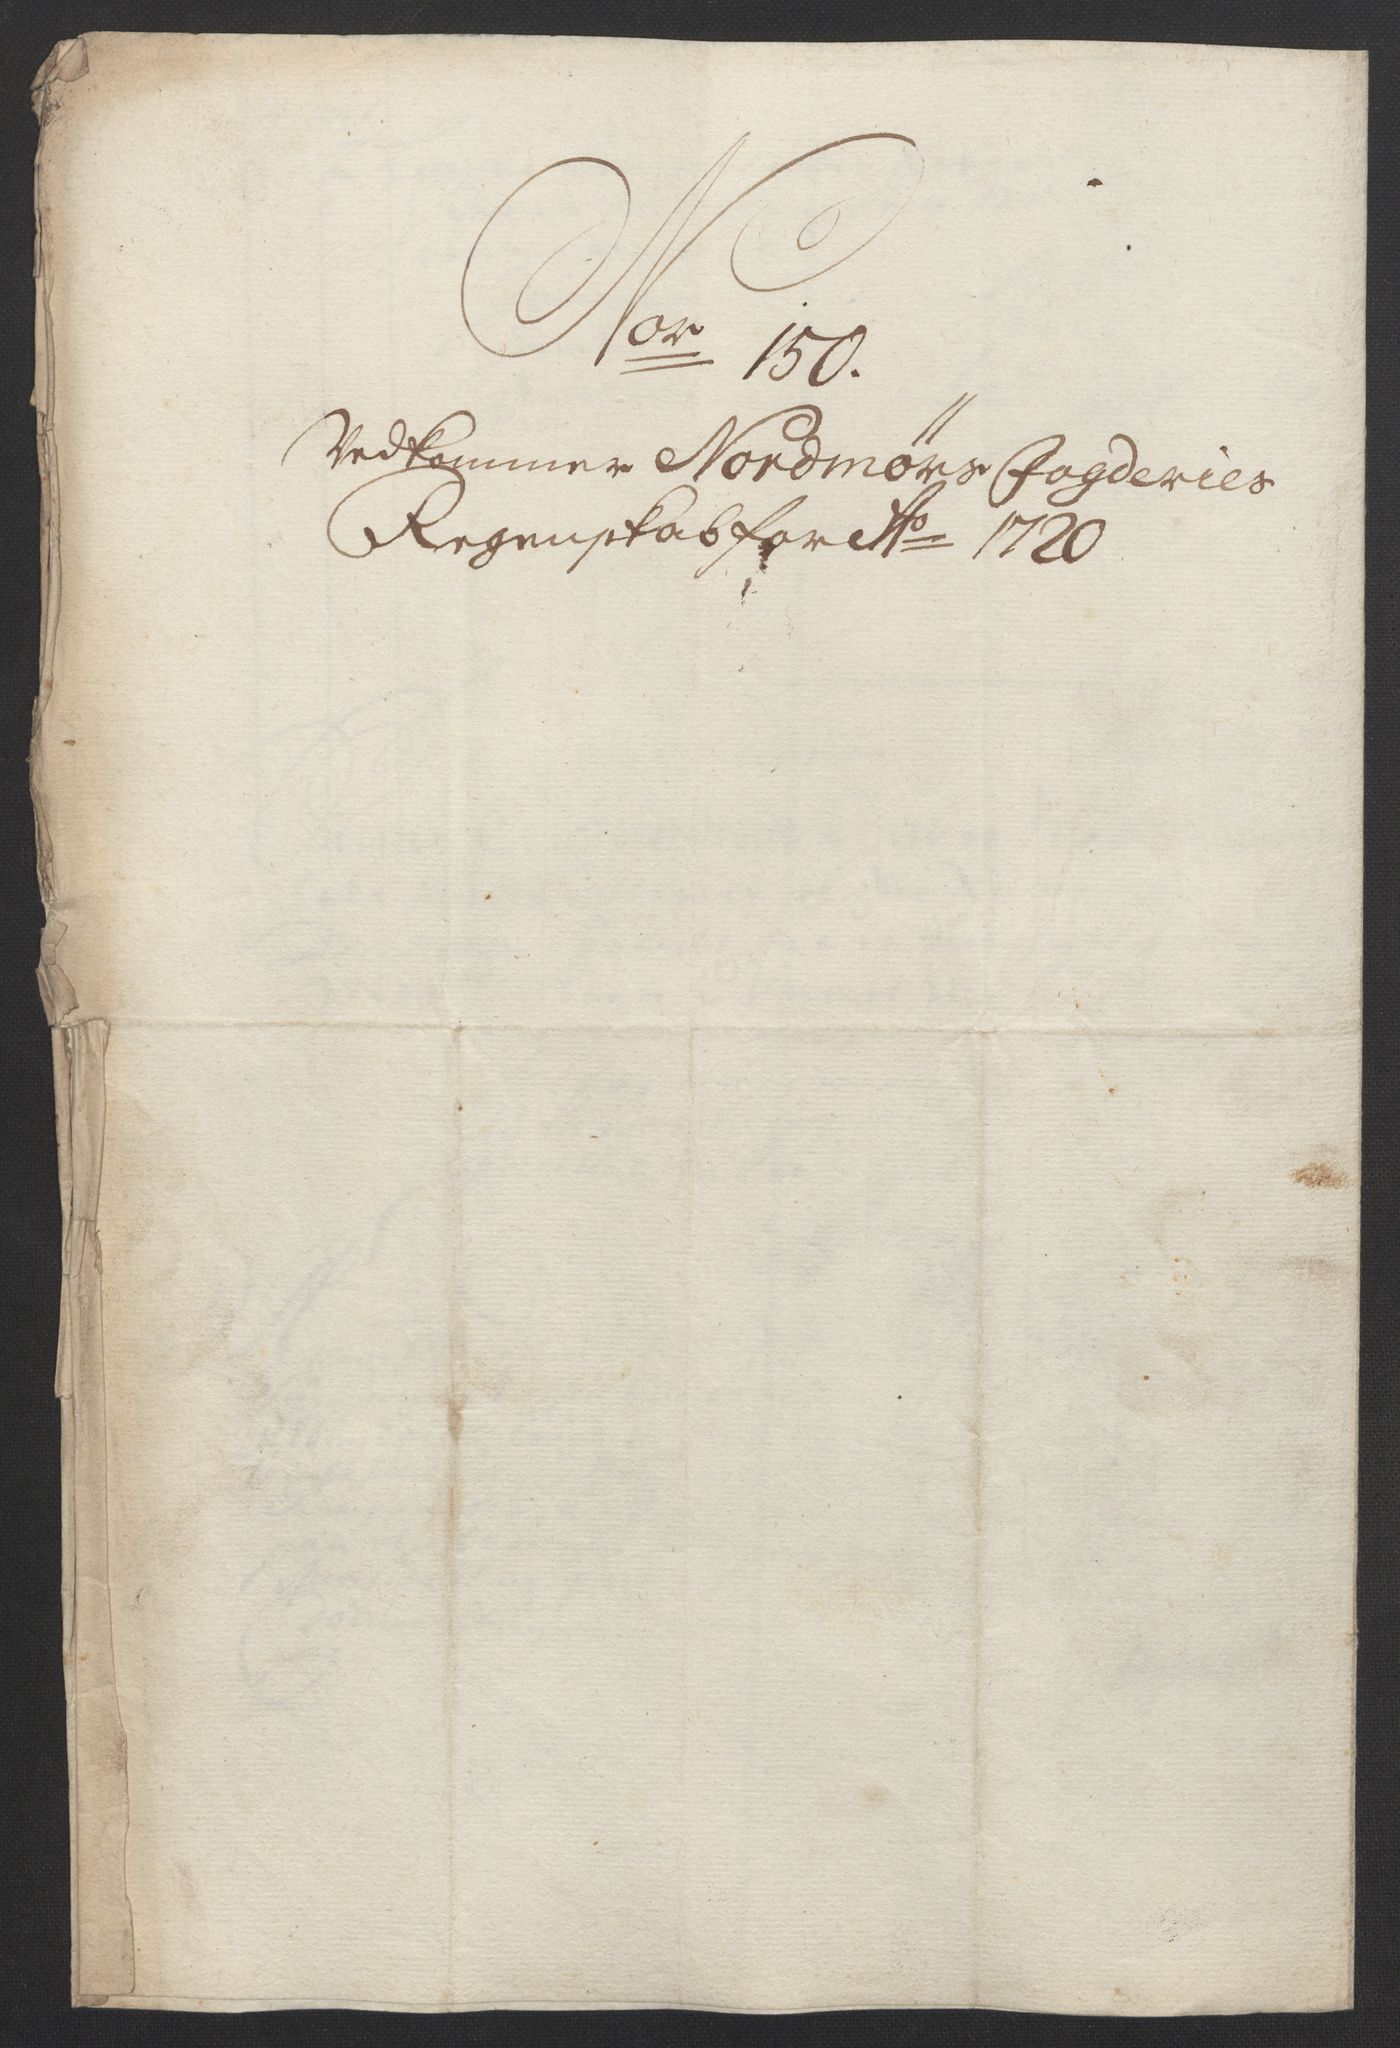 Nor 150.
Vedkommer Nordmørs Fogderies
Regenskab for Ao 1720